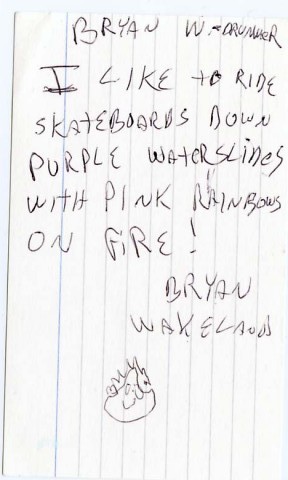 BRYAN W.-DRUMMER
I LIKE to RIDE
SKAtEBOARDS DOWN
PURPLE WAtERSLIDES
WitH PINK RAINBOWS
ON FiRE!
BRYAN
WAKELAND